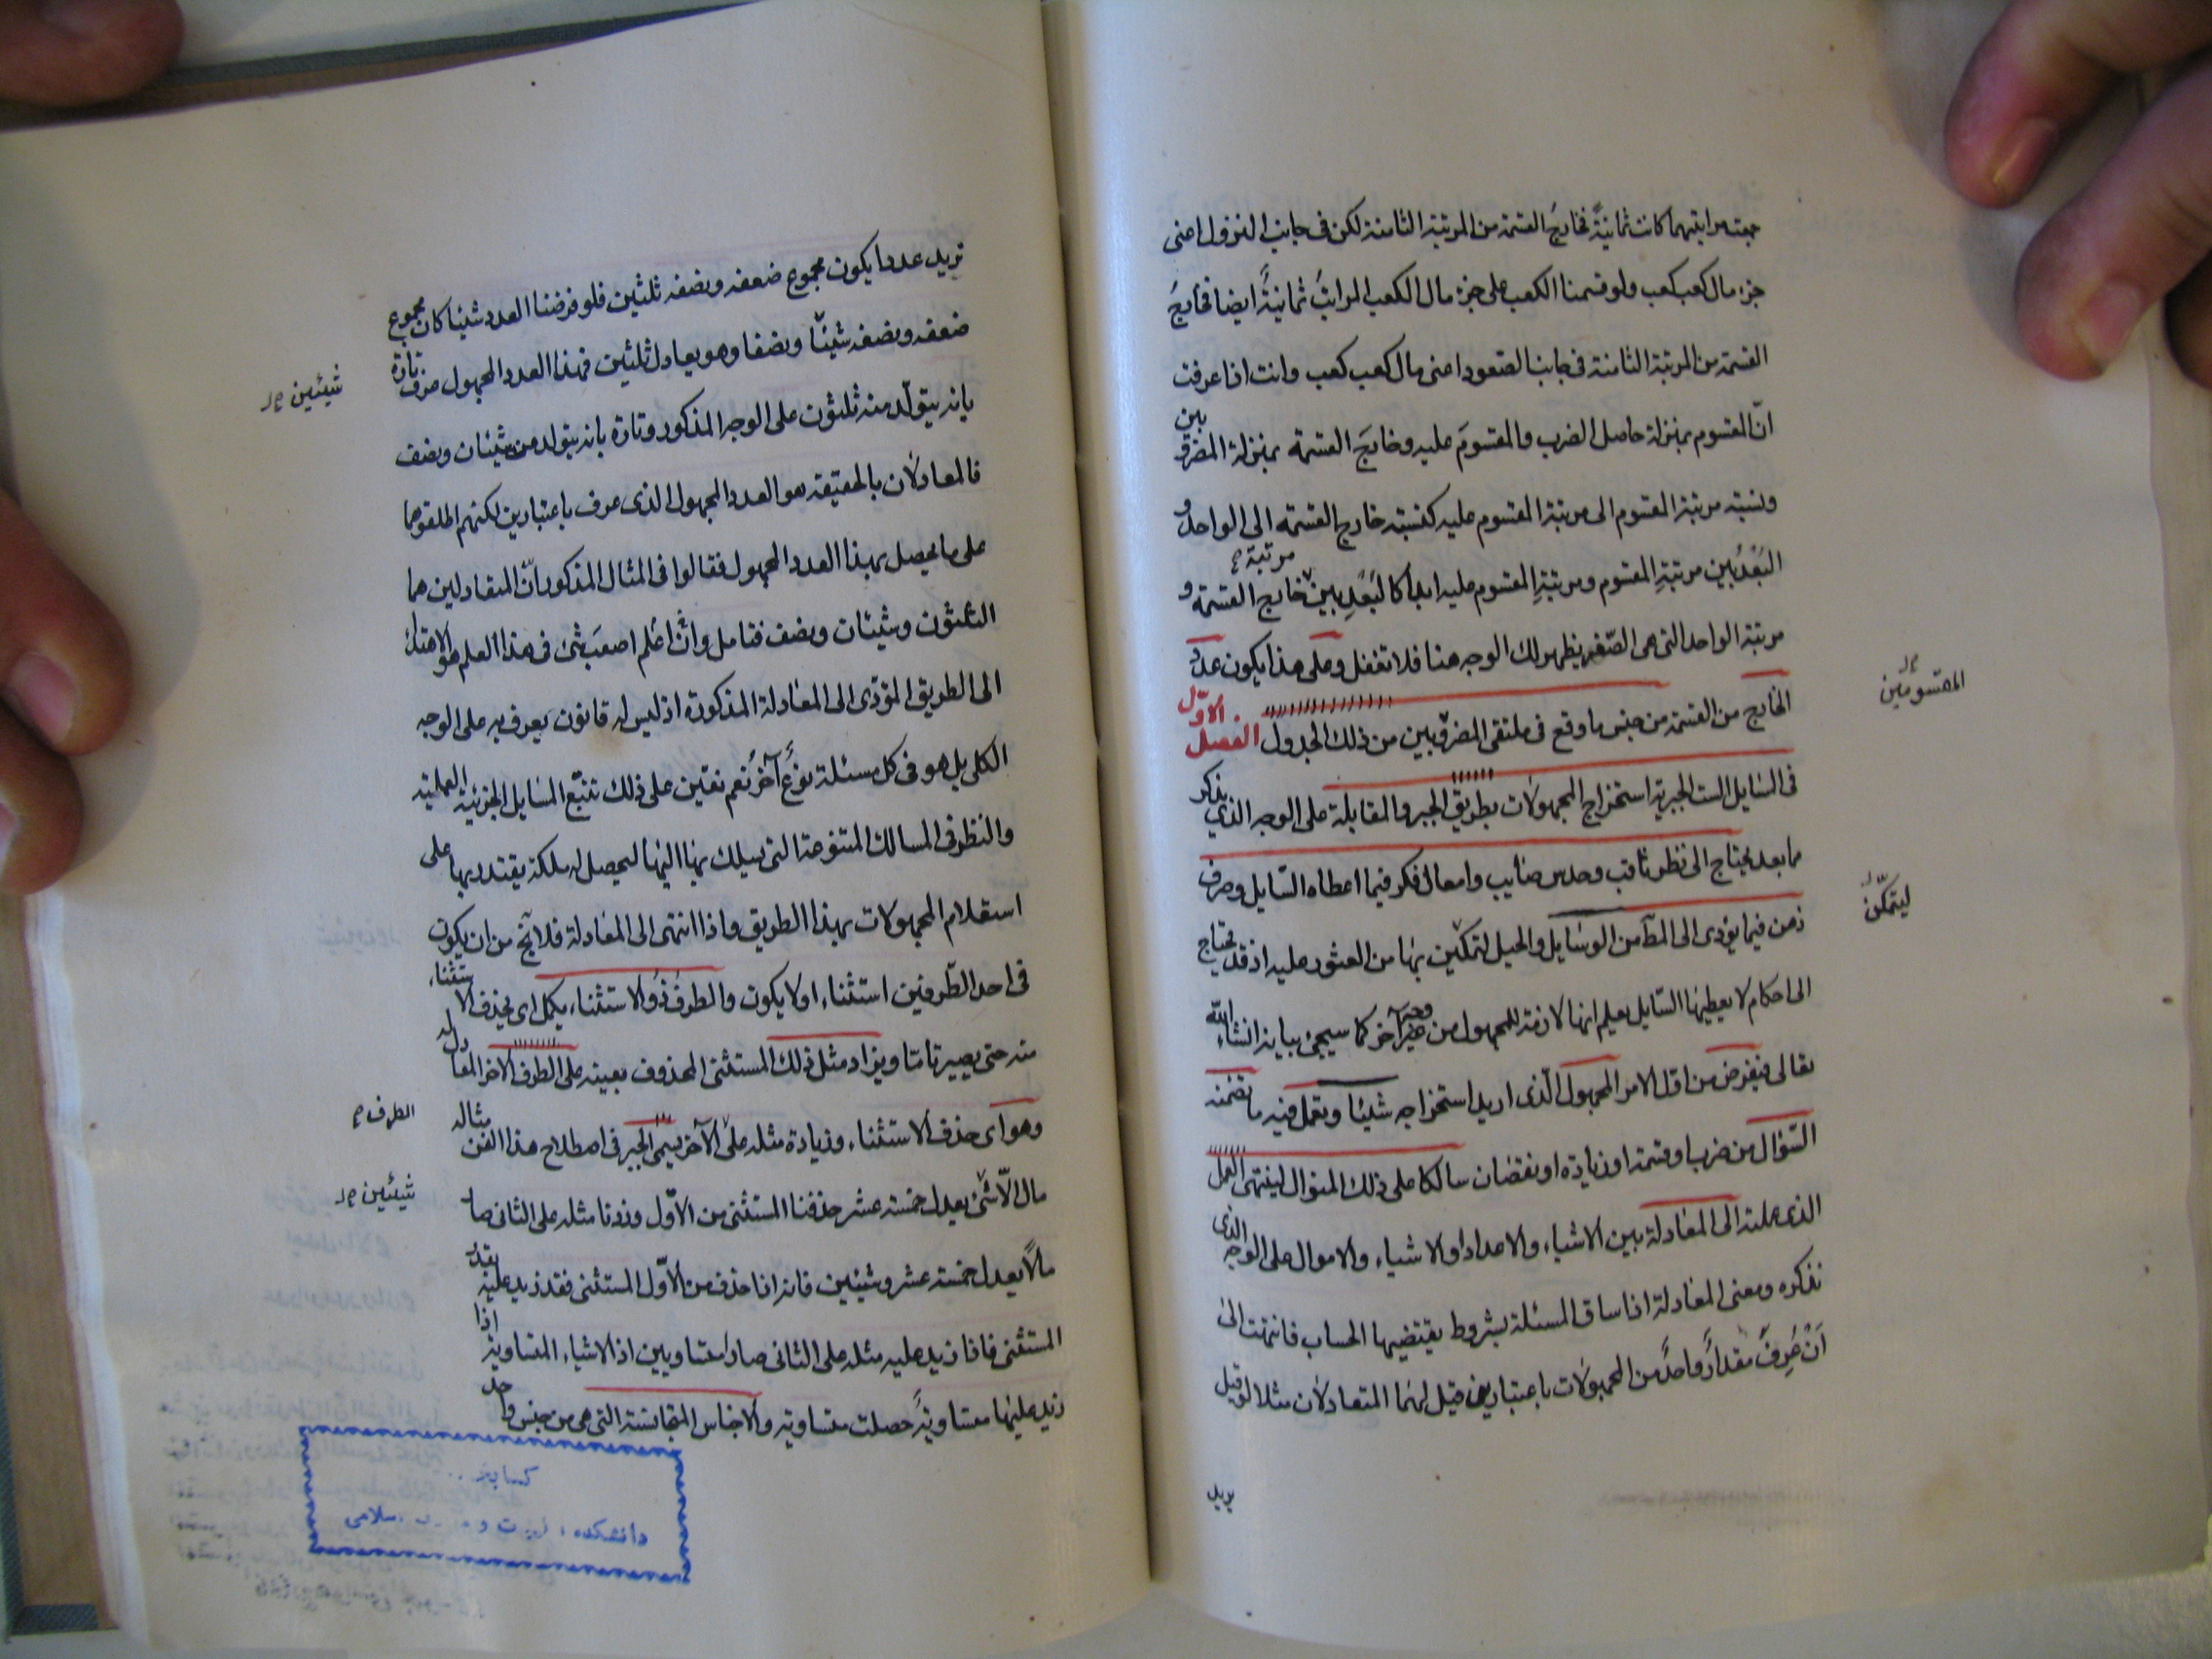 جمعت مراتبهما كانت ثمانيةً فخارجُ القسمة من المرتبة الثامنة لكن فى جانب النزول اعنى
جزء مال كعب كعب ولو قسمنا الكعب على جزء مال الكعب المراتبُ ثمانيةً ايضا فخارجُ
القسمة من المرتبة الثامنة فى جانب الصّعود اعنى مال كعب كعب وانت اذا عرفت
انّ المقسوم بمنزلة حاصل الضرب والمقسومَ عليه وخارجَ القسمة بمنزلة المضروبين
ونسبة مرتبة المقسوم الى مرتبة المقسوم عليه كنسبة خارج القسمة الى الواحد و
البُعْدُ بين مرتبةِ المقسوم ومرتبةِ المقسوم عليه ابدًا كالبُعْدِ بين مرتبة خارج القسمة و
مرتبة الواحد التى هى الصّفر يظهر لك الوجه هنا فلا تغفل وعلى هذا يكون عدد
المقسومين
الخارج من القسمة من جنس ما وقع فى ملتقى المضروبين من ذلك الجدول الفصل الاوّل
فى المسايل الست الجبرية استخراج المجهولات بطريق الجبر والمقابلة على الوجه الذى يذكر
ما بعد يحتاج الى نظر ثاقب وحدس صايب وامعان فكر فيما اعطاه السّايل وصرف
ليتمكّن
ذهن فيما يؤدى الى المط من الوسايل والحيل لتمكين بها من العثور عليه اذ قد يحتاج
الى احكام لا يعطيها السّايل يعلم انها لازمة للمجهول من وجه آخر كما سيجئ بيانه انشاء الله
تعالى فيفرض من اوّل الامر المجهول الّذى اريد استخراجه شيئا ويعمل فيه ما تضمّنه
السّؤال من ضرب او قسمة او زيادة او نقصان سالكا على ذلك المنوال لينتهى العمل
الذى عملته الى المعادلة بين الاشياء والاعداد او الاشياء والاموال على الوجه الذى
نذكره ومعنى المعادلة اذا ساق المسئلة بشروط يقتضيها الحساب فانتهت الى
اَنْ عُرِفَ مقدارٌ واحدٌ من المجهولات باعتبارين قيل لهما المتعادلان مثلا لو قيل
يريد
نريد عددا يكون مجموع ضعفه ونصفه ثلثين فلو فرضنا العدد شيئا كان مجموع
ضعفه ونصفه شيئًا ونصفا وهو يعادل ثلثين فهذا العدد المجهول عرف تارة
شيئين
بانه يتولّد منه ثلثون على الوجه المذكور وتارة بانه يتولد من شيئان ونصف
فالمعادلان بالحقيقة هو العدد المجهول الذى عرف باعتبارين لكنهم اطلقوهما
على ما يحصل بهذا العدد المجهول فقالوا فى المثال المذكور انّ المتعادلين هما
الثلثون وشيئان ونصف فتامل واَنَّا اعْلم اصعبَ شئ فى هذا العلم هو الاهتداء
الى الطريق المؤدّى الى المعادلة المذكورة اذ ليس له قانون يعرف به على الوجه
الكلى بل هو فى كل مسئلة نوعٌ آخرُ نعم نعين على ذلك تتبّع المسايل الجزئية العملية
والنظر فى المسالك المتنوعة التى يسلك بها اليها ليحصل له ملكة يقتدر بها على
استعلام المجهولات بهذا الطريق واذا انتهى الى المعادلة فلا يخ من ان يكون
فى احد الطّرفين استثناء او لا يكون والطرفُ ذُو الاستثناء يكمل اى يحذف الاستثناء
منه حتى يصير تامّا ويزاد مثل ذلك المستثنى المحذوف بعينه على الطرف الاخر المعادل له
وهو اى حذف الاستثناء وزيادة مثله على الآخر يسمى الجبر فى اصطلاح هذا الفن مثاله
الطرف
مال الّا شئ يعدل خمسة عشر حذفنا المستثنى من الاوّل وزدنا مثله على الثانى صار
شيئين
مالًا يعدل خمسة عشر وشيئين فانه اذا حذف من الاوّل المستثنى فقد زيد عليه بقدر
المستثنى فاذا زيد عليه مثله على الثانى صارا متساويين اذ الاشياء المتساوية اذا
زيد عليها متساويةً حصلت متساوية والاجناس المتجانسة التى هى من جنس واحد
دانشكده